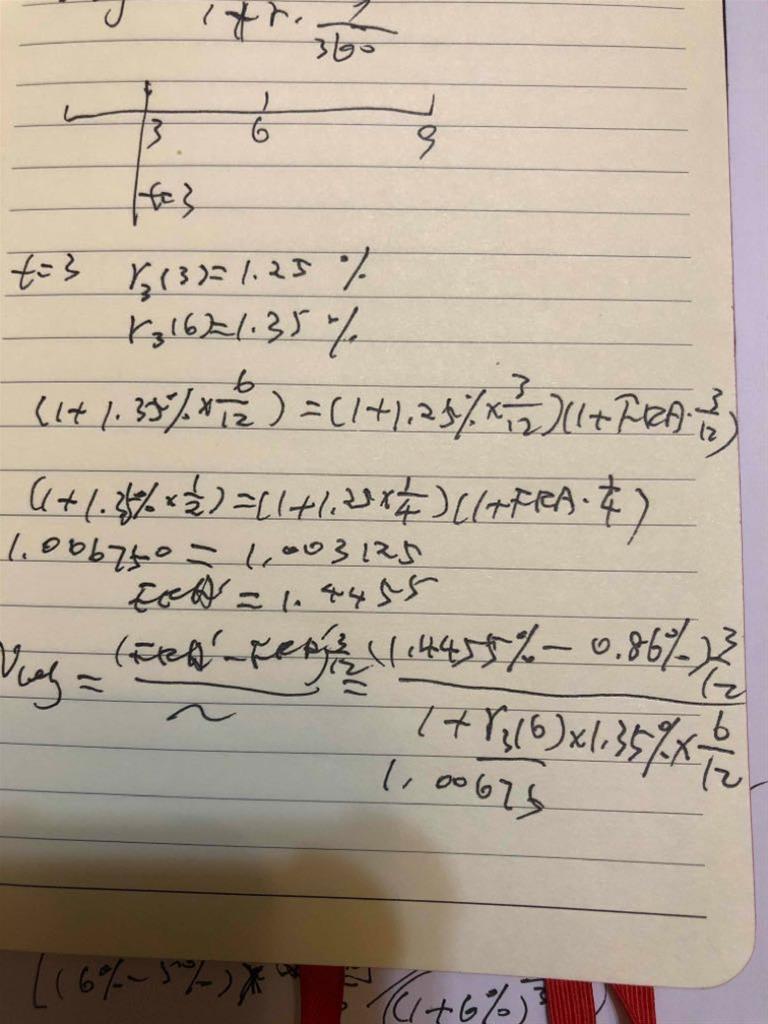 1+r. 7/360
3 6 9
t=3
t=3 r₃(3)=1.25 %
r₃(6)=1.35 %
(1+1.35%×6/12)=(1+1.25%×3/12)(1+FRA·3/12)
(1+1.35%×1/2)=(1+1.25×1/4)(1+FRA·1/4)
1.006750=1.003125
FRA'=1.4455
V = (FRA'-FRA)3/12 / ~ = (1.4455%-0.86%)3/12 / 1+r₃(6)×1.35%×6/12
1.00675
[(6%-5%) /(1+6%)